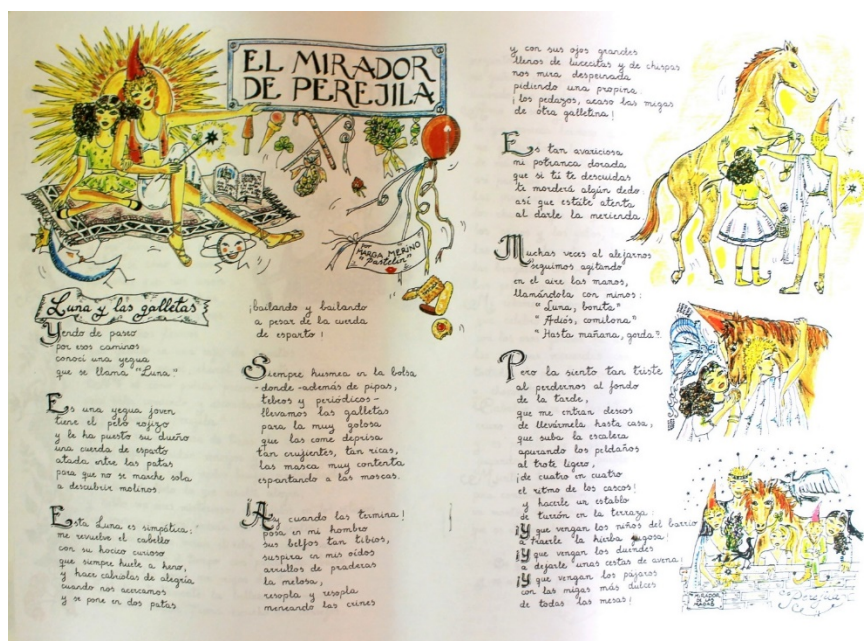 EL MIRADOR
DE PEREJILA
por
MARGA MERINO
"Pastelin"
Luna y las galletas
Yendo de paseo
por esos caminos
conocí una yegua
que se llama "Luna"
Es una yegua joven
tiene el pelo rojizo
y le ha puesto su dueño
una cuerda de esparto
atada entre las patas
para que no se marche sola
a descubrir molinos.
Esta Luna es simpática:
me revuelve el cabello
con su hocico curioso
que siempre huele a heno,
y hace cabriolas de alegría
cuando nos acercamos
y se pone en dos patas
¡bailando y bailando
a pesar de la cuerda
de esparto!
Siempre husmea en la bolsa
-donde -además de pipas,
tebeos y periódicos-
llevamos las galletas
para la muy golosa
que las come deprisa
tan crujientes, tan ricas,
las masca muy contenta
espantando a las moscas.
¡Ay cuando las termina!
posa en mi hombro
sus belfos tan tibios,
suspira en mis oídos
arrullos de praderas
la melosa,
resopla y resopla
meneando las crines
y con sus ojos grandes
llenos de lucecitas y de chispas
nos mira despeinada
pidiendo una propina
¡los pedazos, acaso las migas
de otra galletina!
Es tan avariciosa
mi potranca dorada
que si tú te descuidas
te morderá algún dedo
así que estáte atenta
al darle la merienda.
Muchas veces al alejarnos
seguimos agitando
en el aire las manos,
llamándola con mimos:
"Luna, bonita"
"Adiós, comilona"
"Hasta mañana, gorda".
Pero la siento tan triste
al perdernos al fondo
de la tarde,
que me entran deseos
de llevármela hasta casa,
que suba la escalera
apurando los peldaños
al trote ligero,
¡de cuatro en cuatro
el ritmo de los cascos!
y hacerle un establo
de turrón en la terraza:
¡Y que vengan los niños del barrio
a traerle la hierba jugosa!
¡Y que vengan los duendes
a dejarle unas cestas de avena!
¡Y que vengan los pájaros
con las migas más dulces
de todas las mesas!
MIRADOR
DE LAS
Perejila